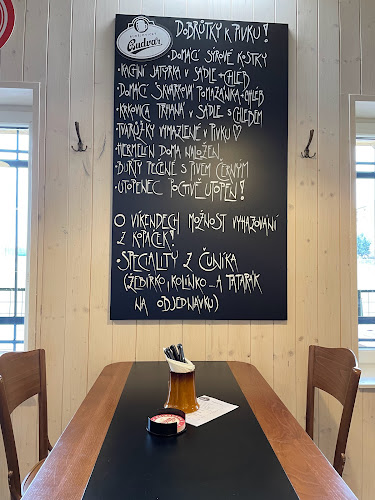 Budvar
DOBRŮTKY K PIVKU!
•DOMACÍ SÝROVÉ KOSTKY
•KACHNÍ JATÝRKA V SÁDLE + CHLÉB
•DOMACÍ ŠKVARKOVÁ POMAZÁNKA + CHLÉB
•KRKOVICA TRHANÁ V SÁDLE S CHLEDEM
•TVARŮŽKY VYMAZLENÉ V PIVKU ♡
•HERMELÍN DOMA NALOŽEN.
•BUŘTY PEČENÉ S PIVEM ČERNÝM
•UTOPENEC POCTIVĚ UTOPEN!
O VÍKENDECH MOŽNOST VYHAZOVÁNÍ
Z KOPAČEK!
•SPECIALITY Z ČUNÍKA
(ŽEBÍRKO, KOLÍNKO - A TATARÁK
NA OBJEDNÁVKU)